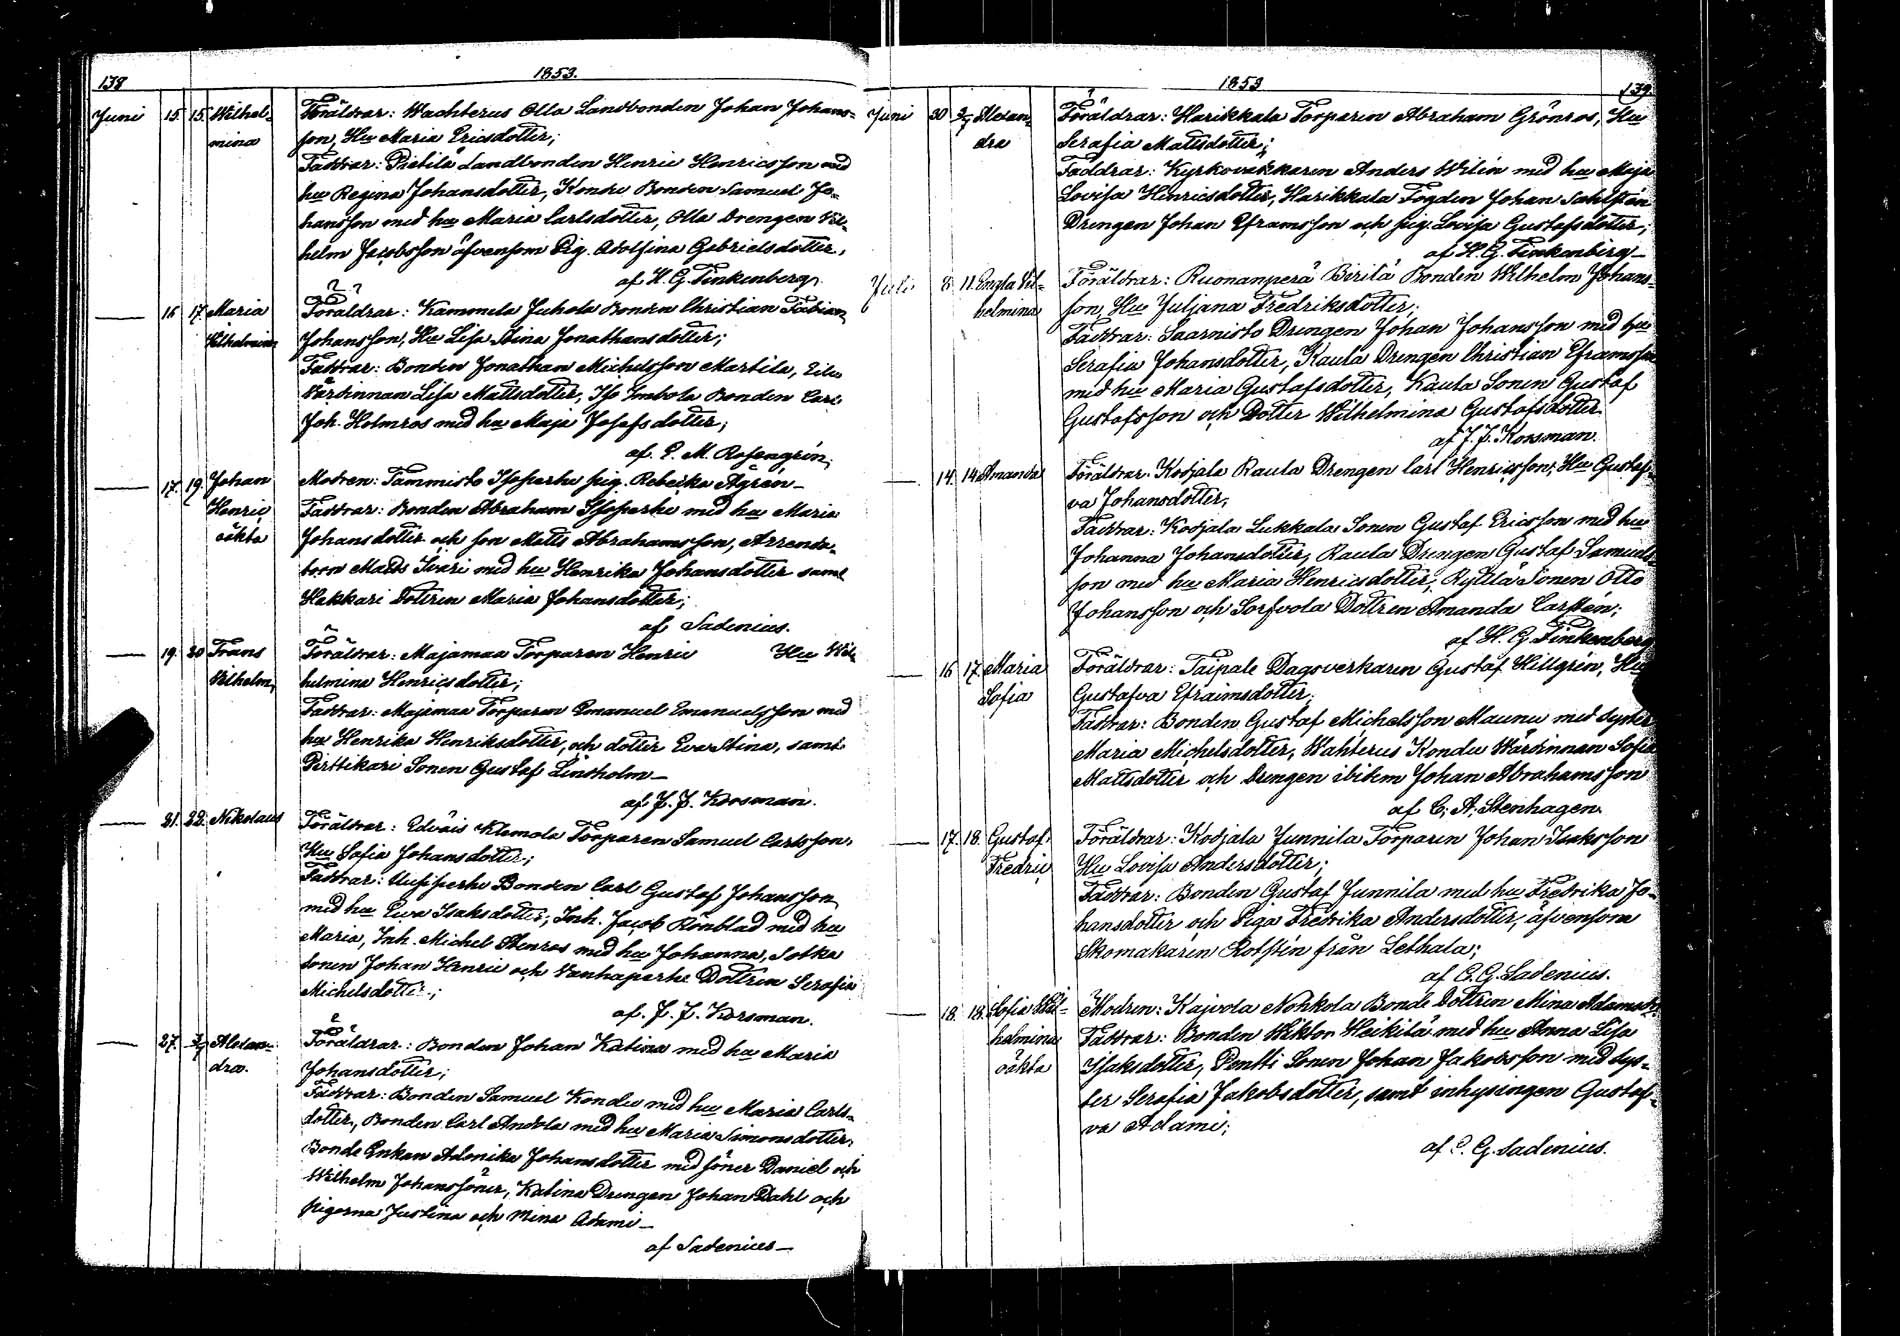 138
1853.
Juni 15. 15. Wilhel- Föräldrar: Wachterus Olla Landbonden Johan Johans-
mina son, Hu Maria Ericsdotter;
Faddrar: Pietilä Landbonden Henric Henricsson med
hu Regina Johansdotter, Kondu Bonden Samuel Jo-
hansson med hu Maria Carlsdotter, Olla Drengen Vil-
helm Jacobsson äfvensom Pig. Adolfina Gabrielsdotter,
af H. G. Finkenberg
— 16 17 Maria Föräldrar: Kammela Juhola Bonden Christian Fabian
Vilhelmina Johansson, Hu Lisa Stina Jonathansdotter;
Faddrar: Bonden Jonathan Michelsson Martila, Eila
Värdinnan Lisa Mattsdotter, Iso Imbola Bonden Carl
Joh. Holmros med hu Maja Josefsdotter;
af P. M. Rosengrén;
— 17. 19. Johan Modren: Tammisto Isoperhe pig. Rebecka Ågrén—
Henric Faddrar: Bonden Abraham Isoperhe med hu Maria
oäkta Johansdotter och son Matts Abrahamsson, Arrenda-
torn Matts Svari med hu Henrika Johansdotter samt
Hakkari Dottren Maria Johansdotter;
af Sadenius.
— 19. 20 Frans Föräldrar: Majamaa Torparen Henric Hu Wil-
Vilhelm, helmina Henricsdotter;
Faddrar: Majamaa Torparen Emanuel Emanuelsson med
hu Henrika Henriksdotter, och dotter Eva Stina, samt
Pirttikari Sonen Gustaf Lindholm—
af J. J. Korsman.
— 21. 22. Nikolaus Föräldrar: Edväis Klemola Torparen Samuel Carlsson,
Hu Sofia Johansdotter;
Faddrar: Uusiperhe Bonden Carl Gustaf Johansson
med hu Ewa Isaksdotter, Inh. Jacob Rönblad med hu
Maria, Inh. Michel Stenros med hu Johanna, Sotka
sonen Johan Henric och Vanhaperhe Dottren Serafia
Michelsdotter;
af J. J. Korsman.
— 27. 3/7 Alexan- Föräldrar: Bonden Johan Katina med hu Maria
dra. Johansdotter;
Faddrar: Bonden Samuel Kondu med hu Maria Carls-
dotter, Bonden Carl Andola med hu Maria Simonsdotter,
Bonde Enkan Adonika Johansdotter med söner Daniel och
Wilhelm Johanssöner, Katina Drengen Johan Dahl och
pigorna Justina och Mina Adami—
af Sadenius—
1853
139.
Juni 30 3/7 Alexan- Föräldrar: Harikkala Torparen Abraham Grönros, Hu
dra Serafia Mattsdotter;
Faddrar: Kyrkoväktaren Anders Wilén med hu Maja
Lovisa Henricsdotter, Harikkala Fogden Johan Sahlstén
Drengen Johan Eframsson och pig. Lovisa Gustafsdotter;
af H. G. Finkenberg—
Juli 8 11. Engla Vil- Föräldrar: Ruonanperä Birilä Bonden Wilhelm Johans-
helmina son, Hu Juljana Fredriksdotter;
Faddrar: Saarnisto Drengen Johan Johansson med hu
Serafia Johansdotter, Kaula Drengen Christian Eframsson
med hu Maria Gustafsdotter, Kaula Sonen Gustaf
Gustafsson och Dotter Wilhelmina Gustafsdotter
af J. J. Korsman.
— 14. 14 Amanda Föräldrar: Kodjala Raula Drengen Carl Henricsson, Hu Gustaf-
va Johansdotter,
Faddrar: Kodjala Lukkala Sonen Gustaf Ericsson med hu
Johanna Johansdotter, Raula Drengen Gustaf Samuels-
son med hu Maria Henricsdotter, Ryttilä Sonen Otto
Johansson och Sorfvola Dottren Amanda Carstén;
af H. G. Finkenberg
— 16 17. Maria Föräldrar: Taipale Dagsverkaren Gustaf Hillgrén, Hu
Sofia Gustafva Efraimsdotter;
Faddrar: Bonden Gustaf Michelsson Maunu med syster
Maria Michelsdotter, Wahterus Kondu Wärdinnan Sofia
Mattsdotter och Drengen ibidem Johan Abrahamsson
af C. A. Stenhagen.
— 17. 18. Gustaf Föräldrar: Kodjala Junnila Torparen Johan Isaksson
Fredric Hu Lovisa Andersdotter;
Faddrar: Bonden Gustaf Junnila med hu Fredrika Jo-
hansdotter och Piga Fredrika Andersdotter, äfvensom
Skomakaren Rotstén från Lethala;
af C. G. Sadenius.
— 18. 18. Sofia Wil- Modren: Kaivola Nohkola Bonde Dottren Mina Adamsdr.
helmina Faddrar: Bonden Wiktor Heikilä med hu Anna Lisa
oäkta Isaksdotter, Pentti Sonen Johan Jakobsson med sys-
ter Serafia Jakobsdotter, samt inhysingen Gustaf-
va Adami;
af C. G. Sadenius.